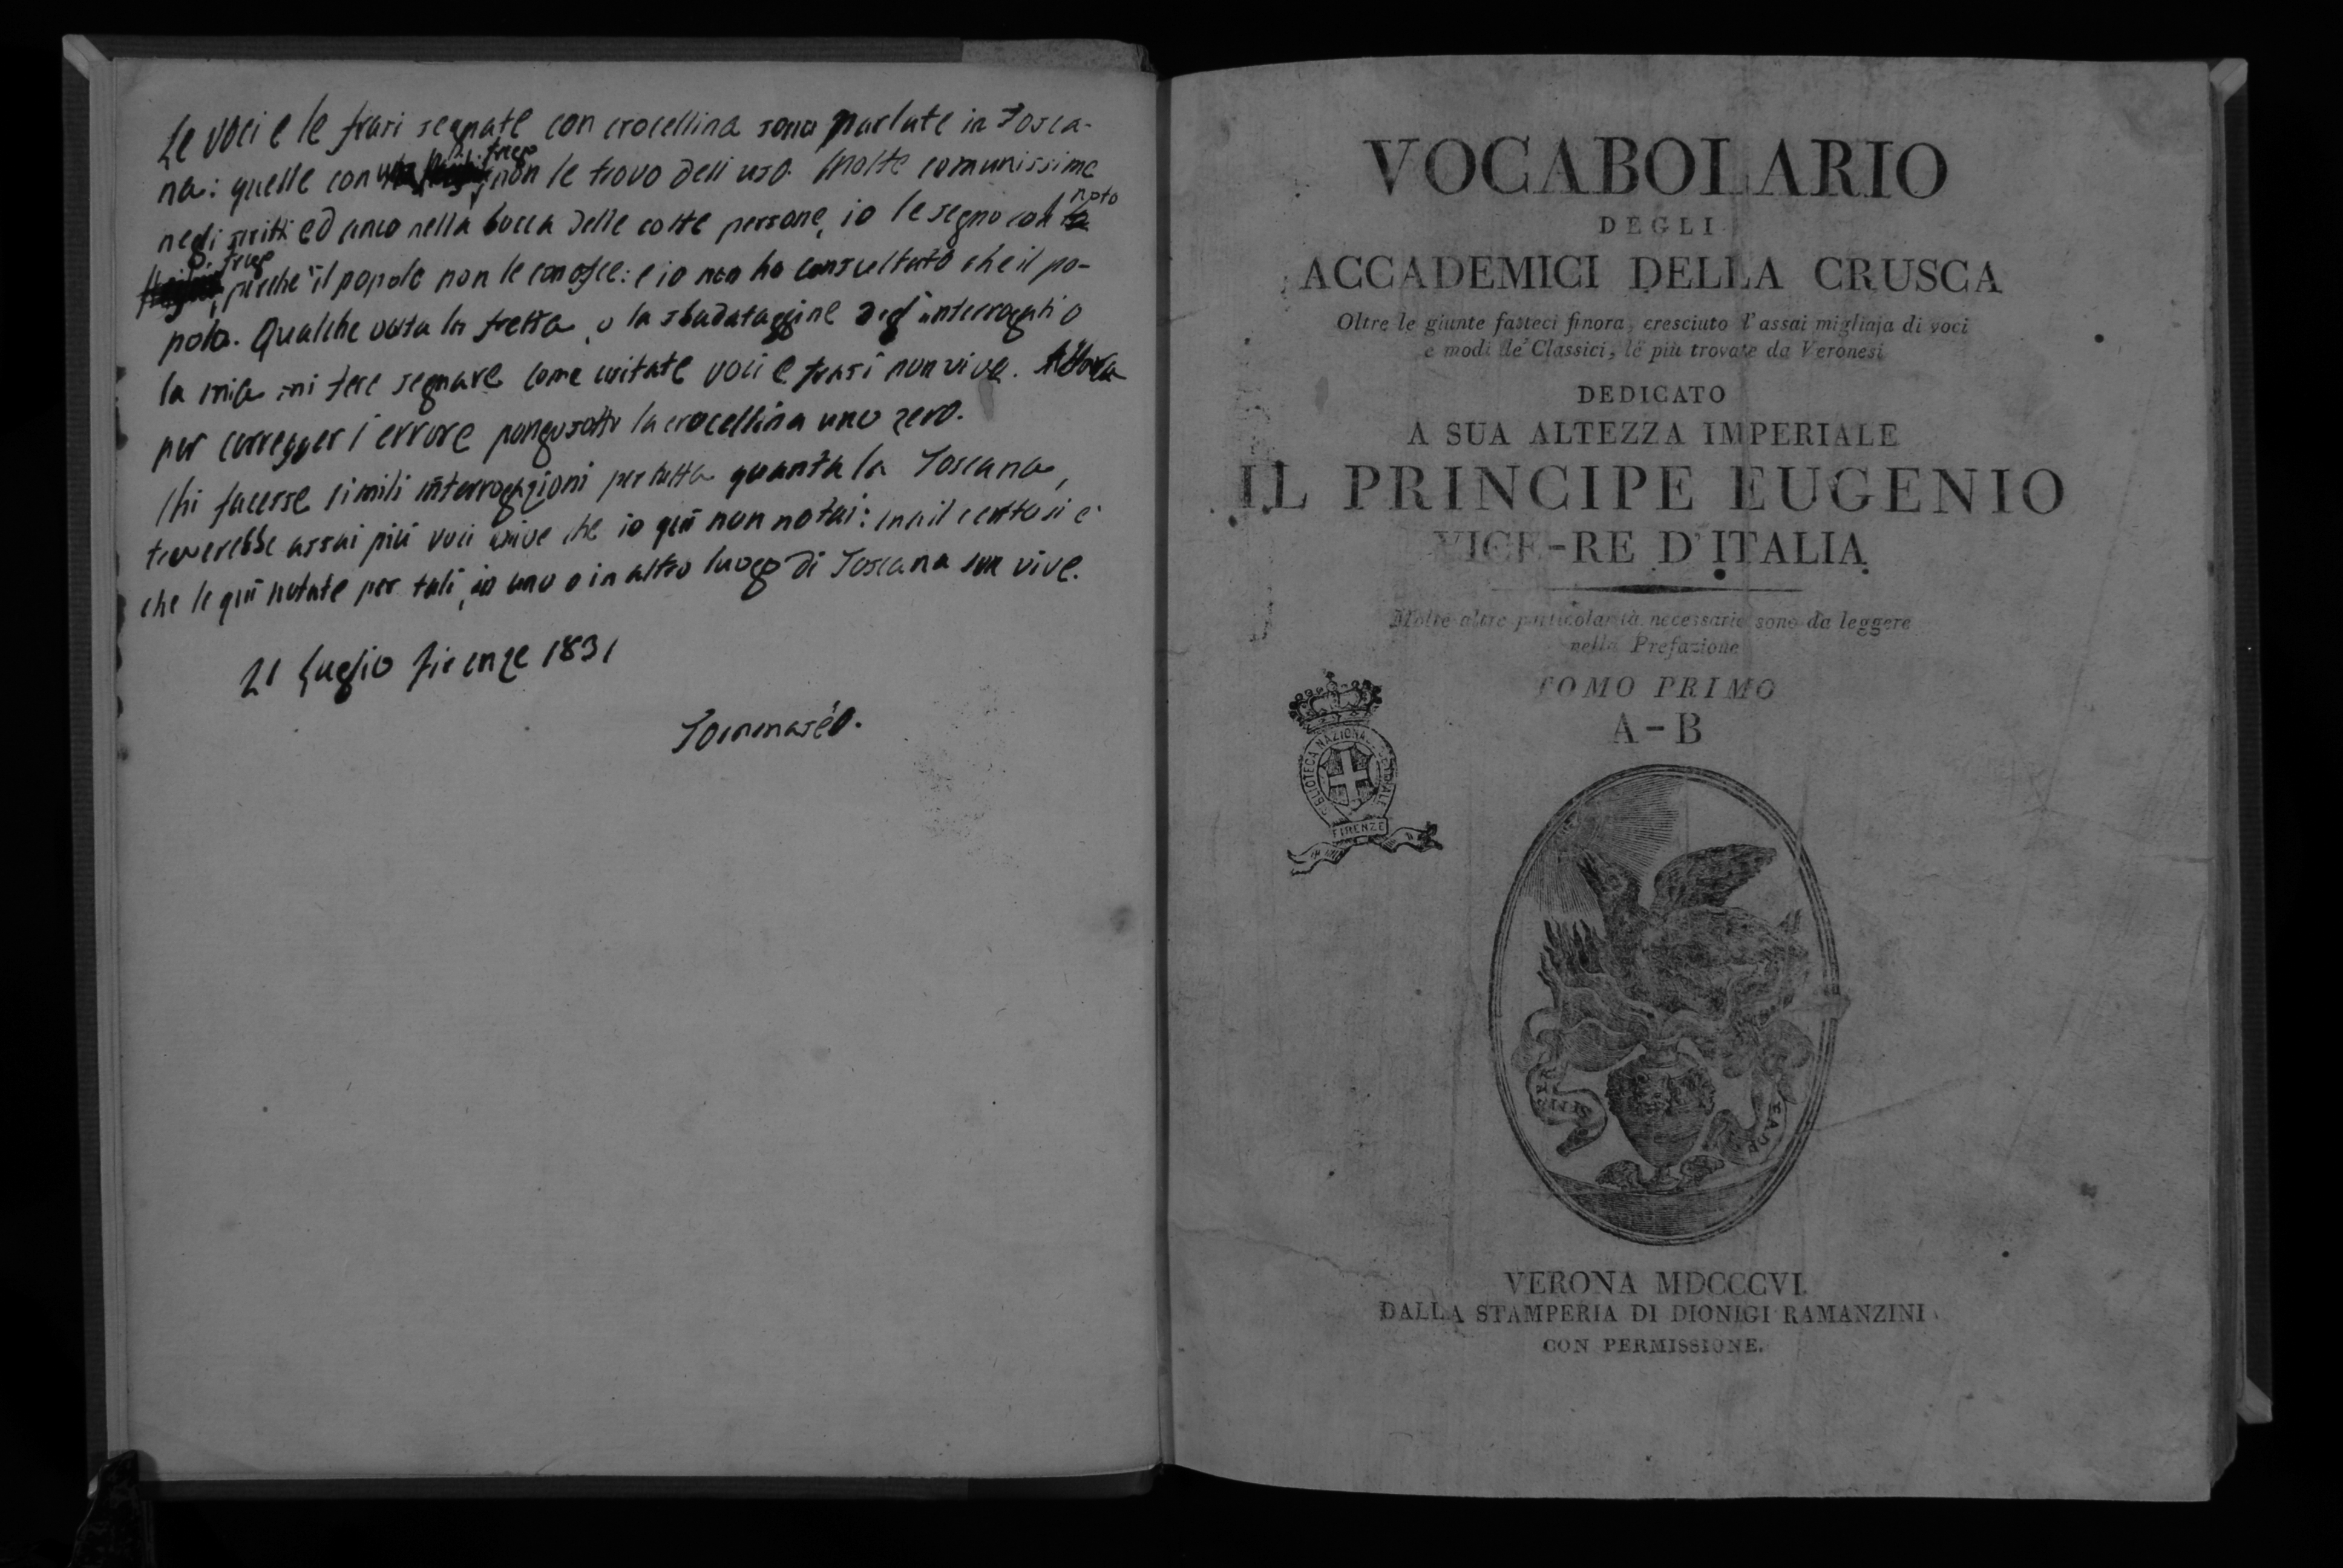 Le voci e le frasi segnate con crocellina sono parlate in Tosca-
na: quelle con frego non le trovo dell'uso. Molte comunissime
negli scritti ed anco nella bocca delle colte persone, io le segno col noto
frego, perchè il popolo non le conosce: e io non ho consultato che il po-
polo. Qualche volta la fretta, o la sbadataggine degl'interrogati o
la mia mi fece segnare come usitate voci e frasi non vive. Allora
per corregger l'errore pongo sotto la crocellina uno zero.
Chi facesse simili interrogazioni per tutta quanta la Toscana,
troverebbe assai più voci vive che io quì non notai: ma il certo si è
che le quì notate per tali, in uno o in altro luogo di Toscana son vive.
21 Luglio Firenze 1831
Tommaséo.
VOCABOLARIO
DEGLI
ACCADEMICI DELLA CRUSCA
Oltre le giunte fatteci finora, cresciuto d'assai migliaja di voci
e modi de' Classici, le più trovate da Veronesi
DEDICATO
A SUA ALTEZZA IMPERIALE
IL PRINCIPE EUGENIO
VICE-RE D'ITALIA
Molte altre particolarità necessarie sono da leggere
nella Prefazione
TOMO PRIMO
A-B
BIBLIOTECA NAZIONALE CENTRALE
FIRENZE
VERONA MDCCCVI.
DALLA STAMPERIA DI DIONIGI RAMANZINI
CON PERMISSIONE.